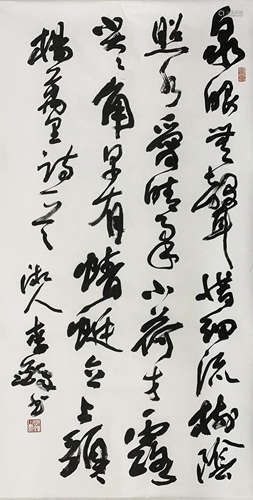 泉眼無聲惜細流樹陰
照水愛晴柔小荷才露
尖々角早有蜻蜓立上頭
楊萬里詩一首 湘人書